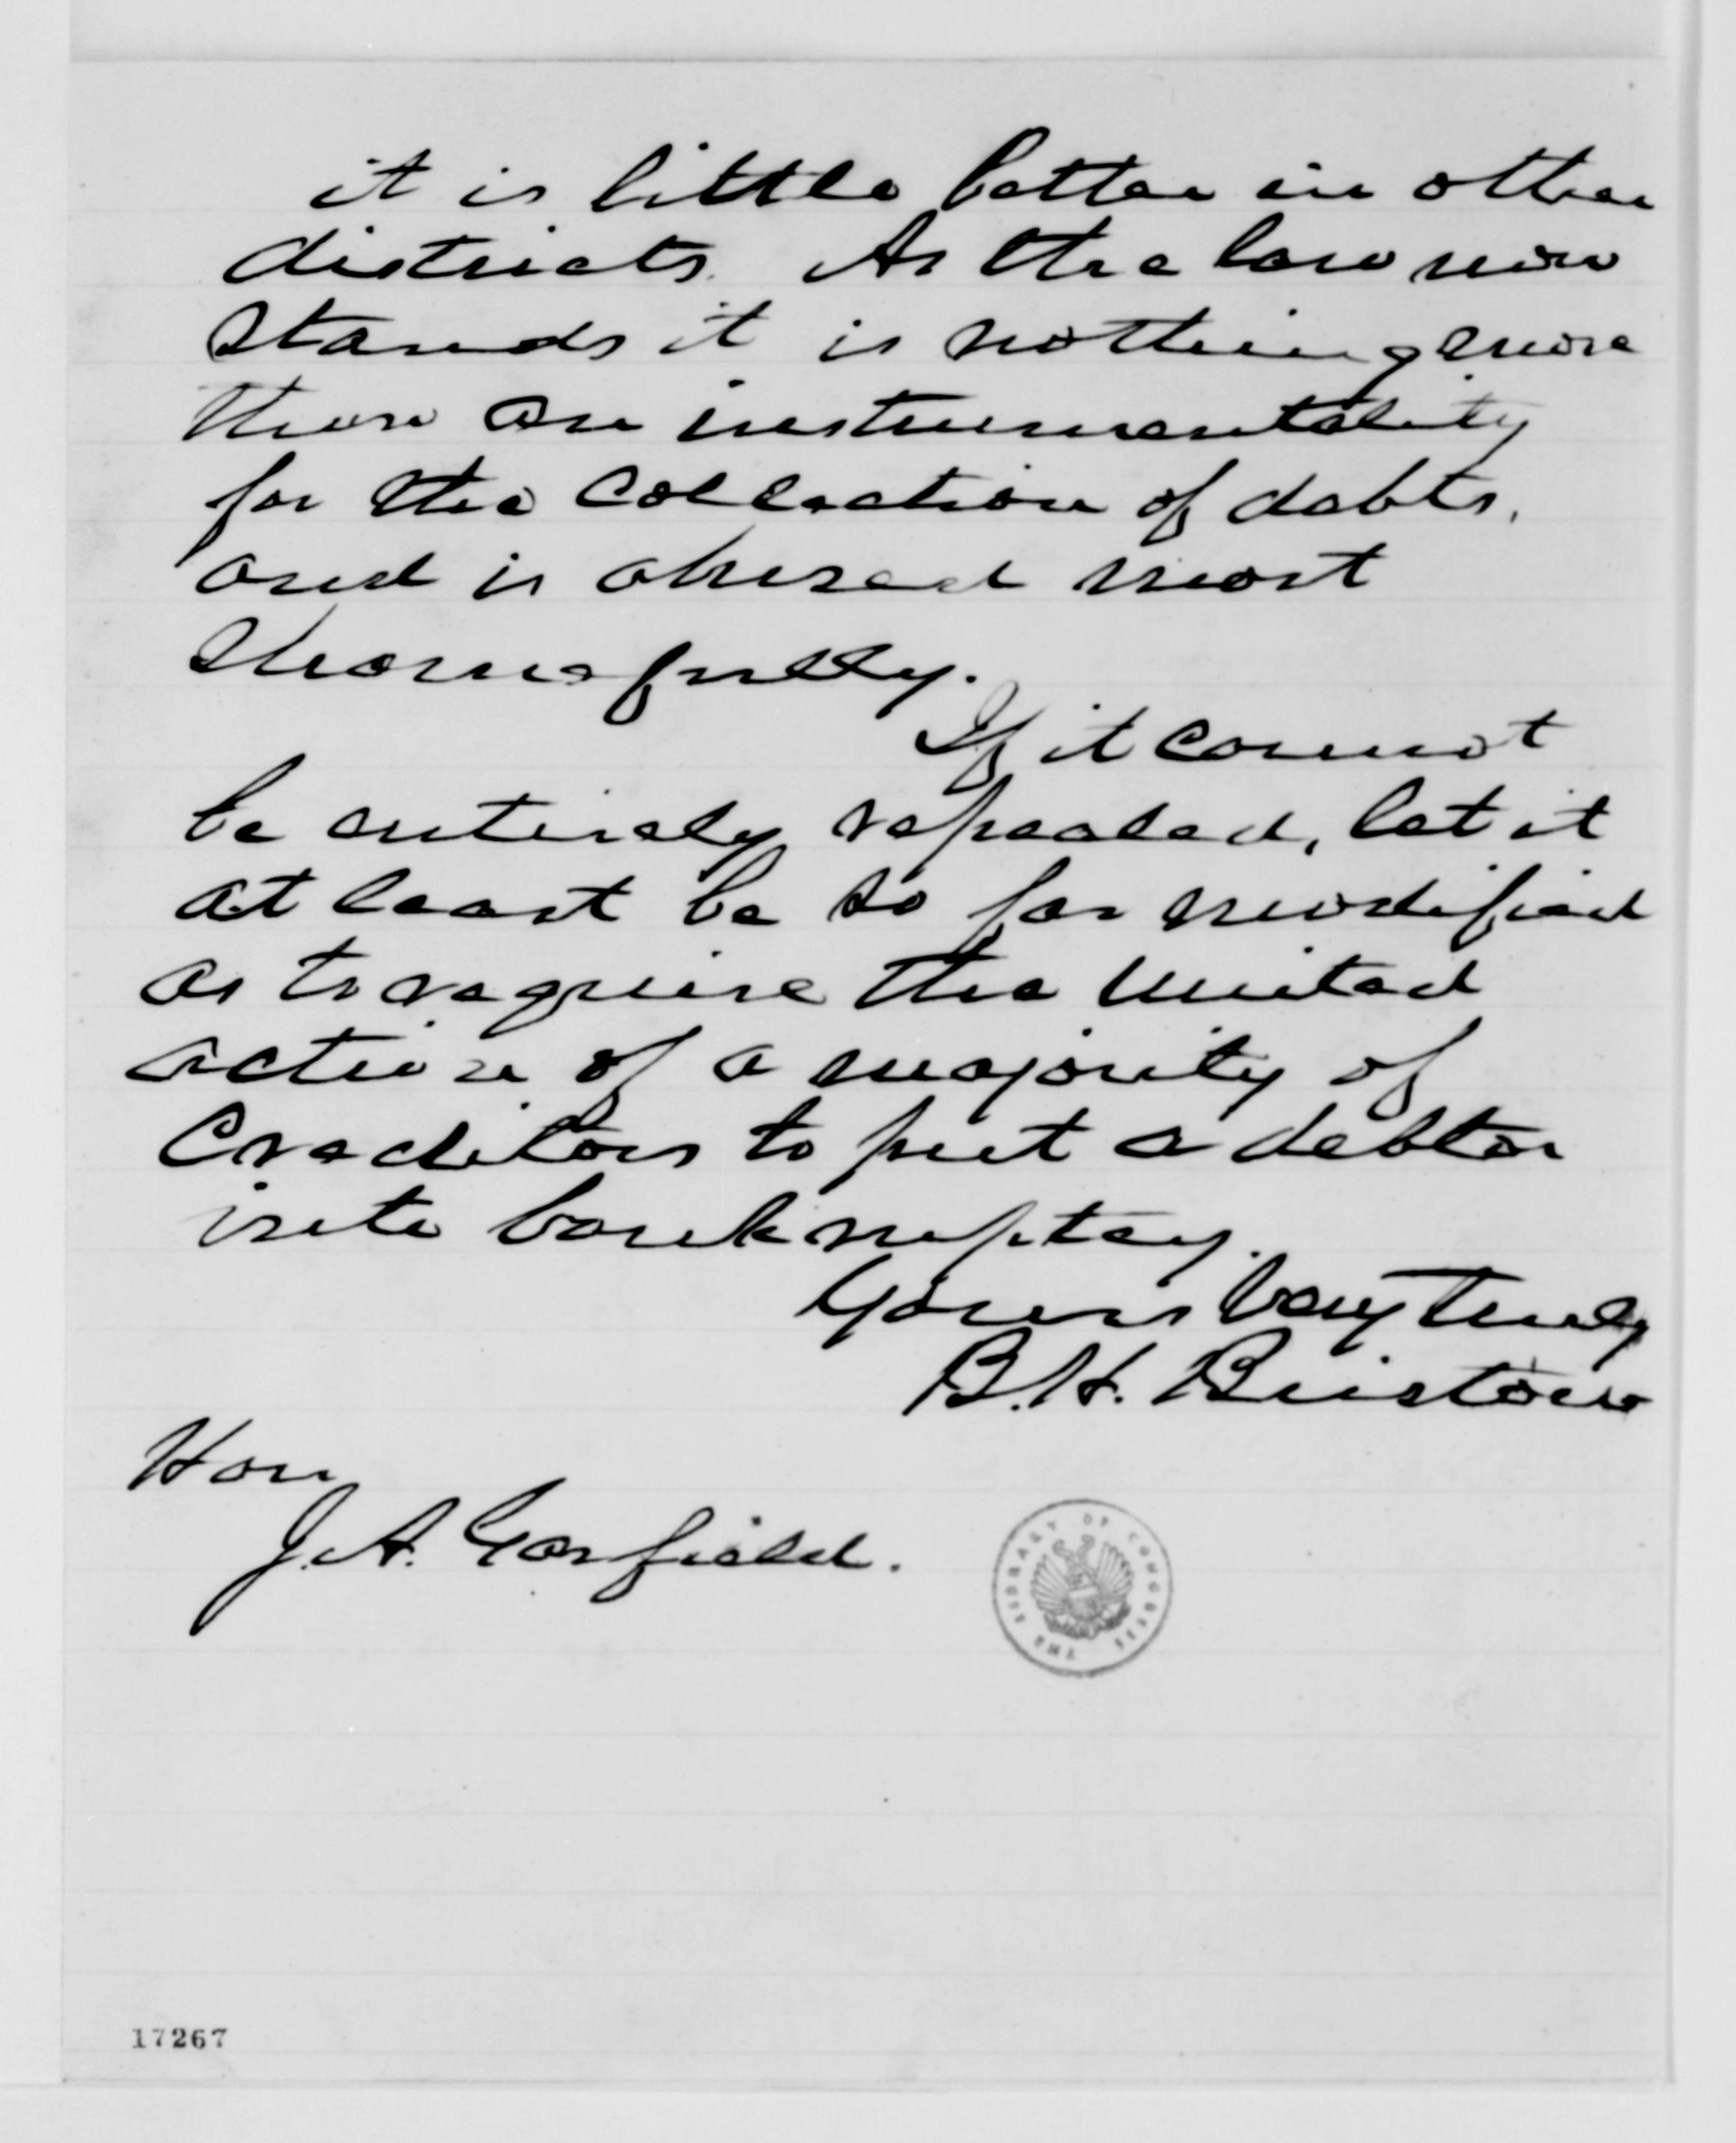 it is little better in other
districts. As the law now
stands it is nothing more
than an instrumentality
for the collection of debts,
and is abused most
shamefully.
If it cannot
be entirely repealed, let it
at least be so far modified
as to require the united
action of a majority of
Creditors to put a debtor
into bankruptcy.
Yours very truly
B.H. Bristow
Hon
J.A. Garfield.
THE LIBRARY OF CONGRESS
17267